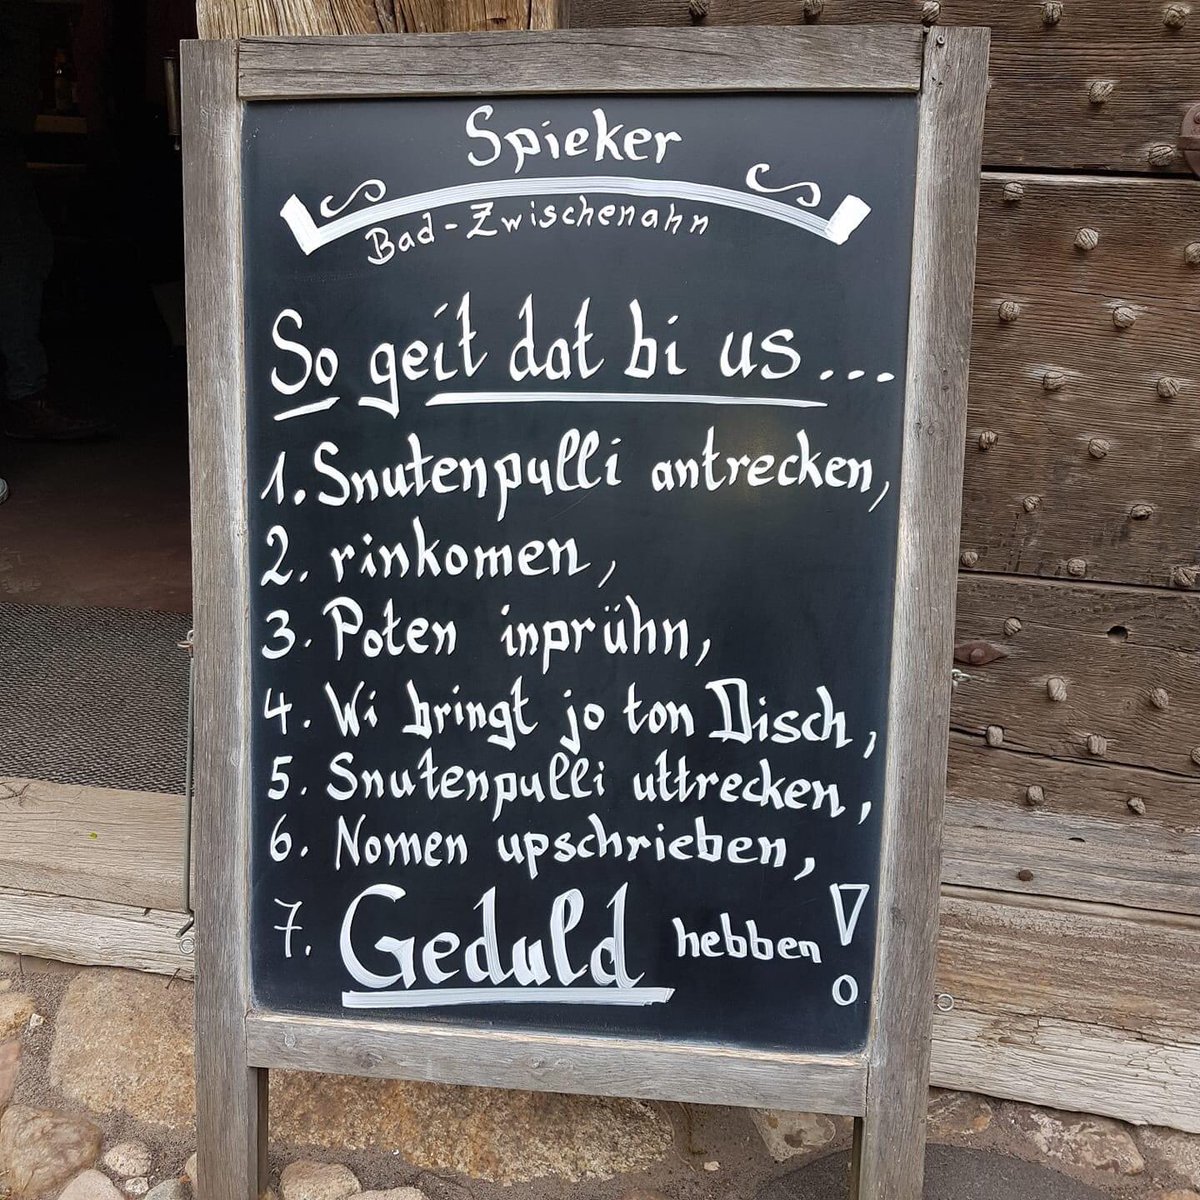 Spieker
Bad-Zwischenahn
So geit dat bi us...
1. Snutenpulli antrecken,
2. rinkomen,
3. Poten inprühn,
4. Wi bringt jo ton Disch,
5. Snutenpulli uttrecken,
6. Nomen upschrieben,
7. Geduld hebben!